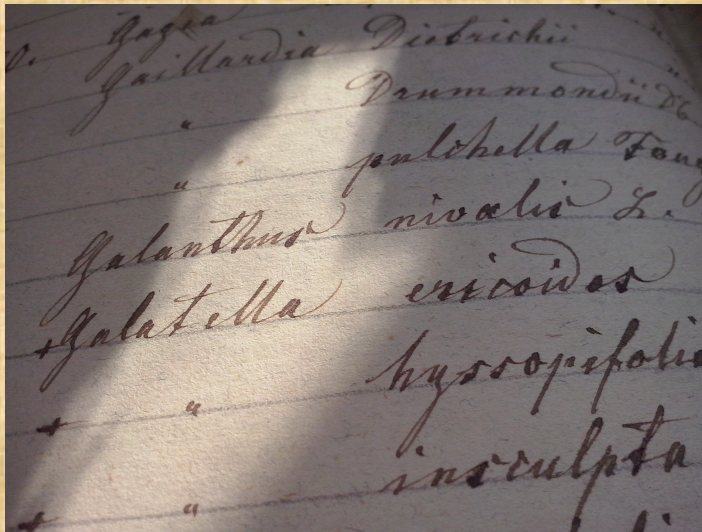 Gagea
Gaillardia Dietrichii
" Drummondii
" pulchella Foug
Galanthus nivalis L.
+Galatella ericoides
+ " hyssopifolia
+ " insculpta